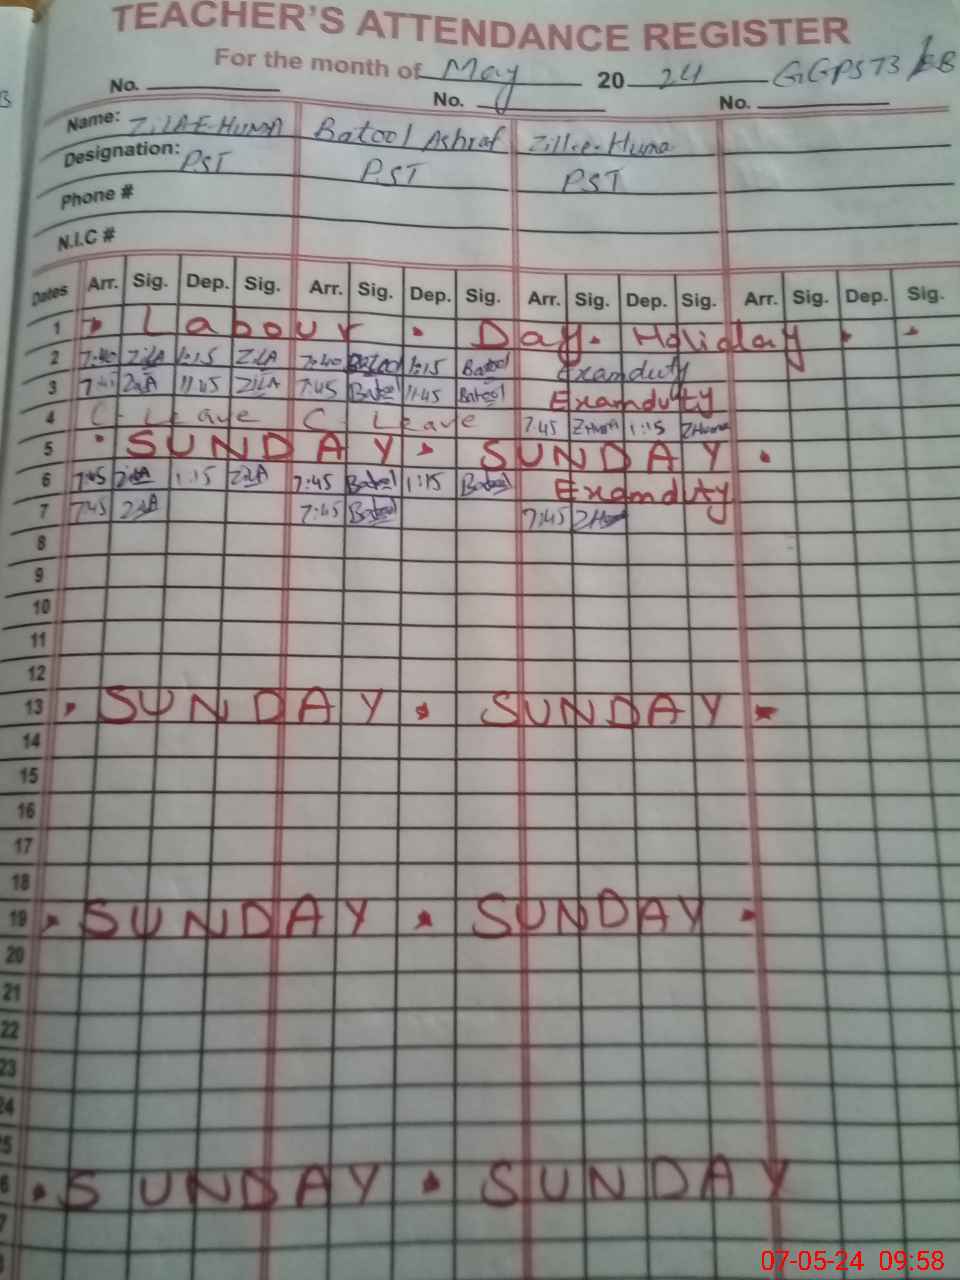 TEACHER'S ATTENDANCE REGISTER
For the month of May 20 24 GGPST3
No. No. No.
Name: ZilAE-HUMA Batool Ashraf Zill-e-Huma
Designation: PST PST PST
Phone #
N.I.C #
Dates Arr. Sig. Dep. Sig. Arr. Sig. Dep. Sig. Arr. Sig. Dep. Sig. Arr. Sig. Dep. Sig.
1 Labour Day. Holiday
2 7:40 ZilA 1:15 ZilA 7:40 Batool 1:15 Batool Examduty
3 7:45 ZilA 11:45 ZilA 7:45 Batool 11:45 Batool Examduty
4 C- Leave C- Leave 7:45 ZHuma 1:15 ZHuma
5 SUNDAY SUNDAY
6 7:45 ZilA 1:15 ZilA 7:45 Batool 1:15 Batool Examduty
7 7:45 ZilA 7:45 Batool 7:45
8
9
10
11
12
13 SUNDAY SUNDAY
14
15
16
17
18
19 SUNDAY SUNDAY
20
21
22
23
24
5
6 SUNDAY SUNDAY
7
07-05-24 09:58